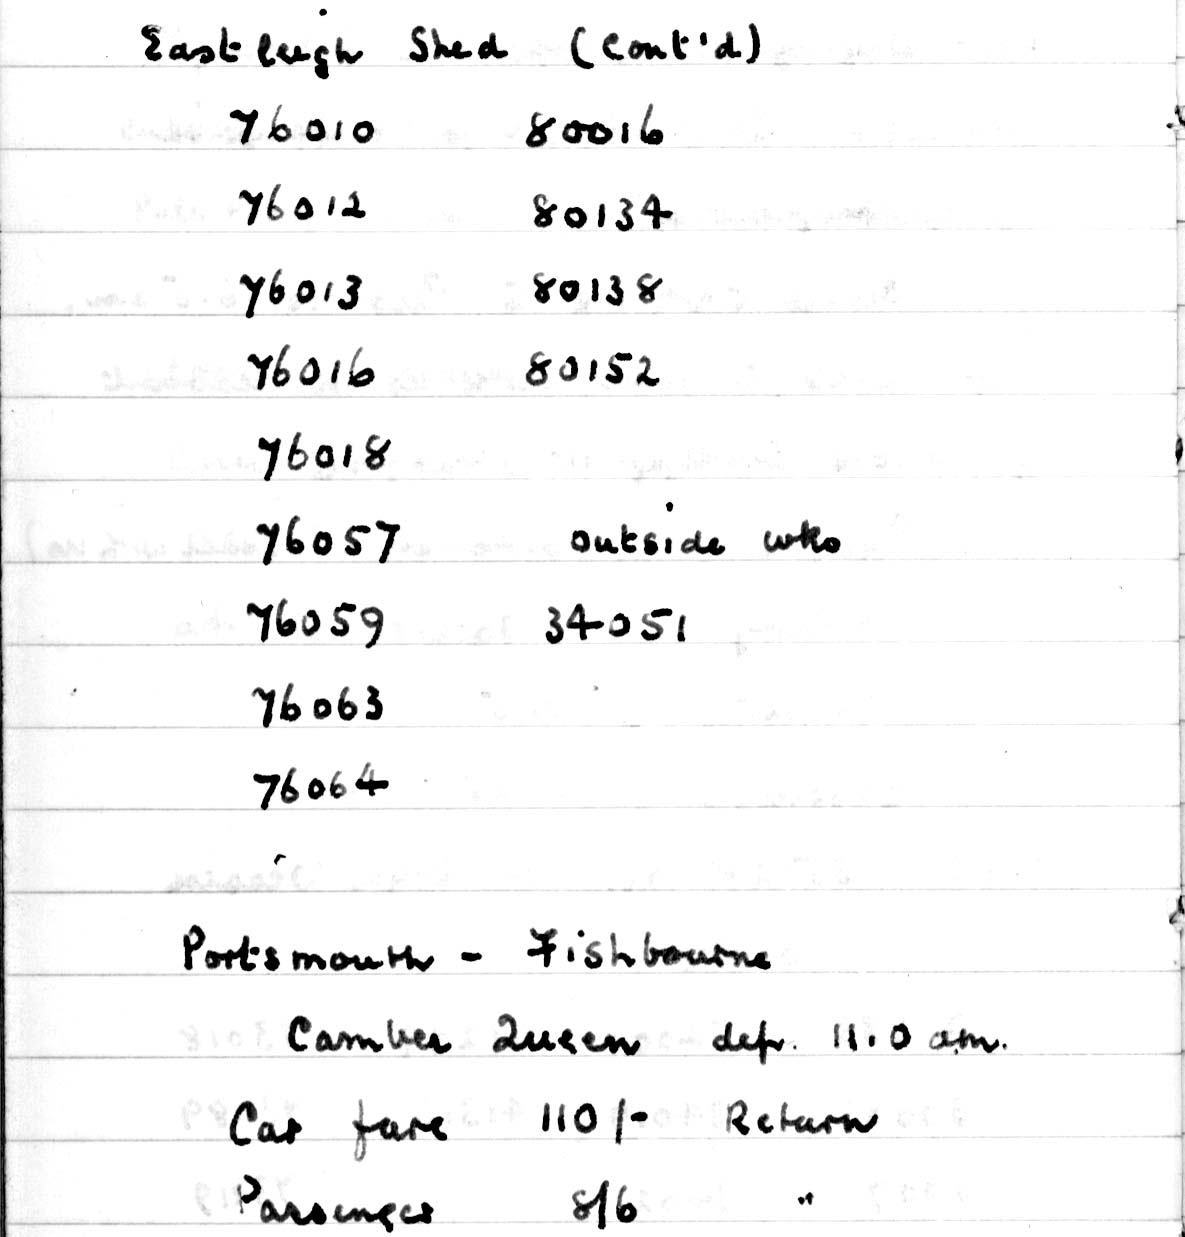 Eastleigh Shed (Cont'd)
76010 80016
76012 80134
76013 80138
76016 80152
76018
76057 outside wks
76059 34051
76063
76064
Portsmouth - Fishbourne
Camber Queen dep. 11.0 am.
Car fare 110/- Return
Passenger 8/6 "